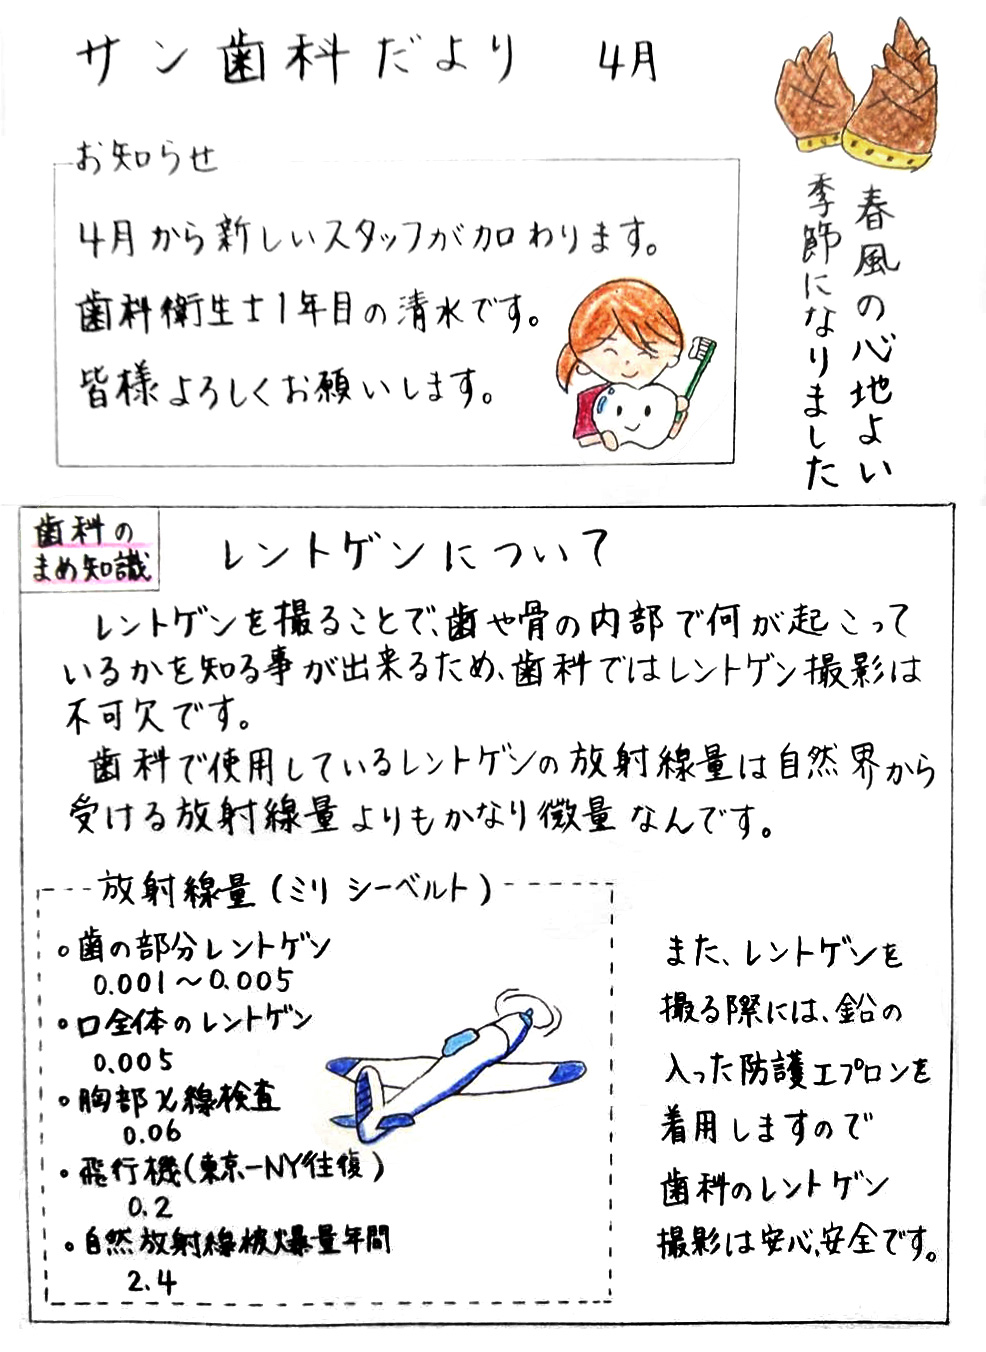 サン歯科だより 4月
春風の心地よい
季節になりました
お知らせ
4月から新しいスタッフが加わります。
歯科衛生士1年目の清水です。
皆様よろしくお願いします。
歯科の
まめ知識
レントゲンについて
レントゲンを撮ることで、歯や骨の内部で何が起こって
いるかを知る事が出来るため、歯科ではレントゲン撮影は
不可欠です。
歯科で使用しているレントゲンの放射線量は自然界から
受ける放射線量よりもかなり微量なんです。
放射線量(ミリシーベルト)
○歯の部分レントゲン
0.001～0.005
○口全体のレントゲン
0.005
○胸部X線検査
0.06
○飛行機(東京-NY往復)
0.2
○自然放射線被爆量年間
2.4
また、レントゲンを
撮る際には、鉛の
入った防護エプロンを
着用しますので
歯科のレントゲン
撮影は安心、安全です。